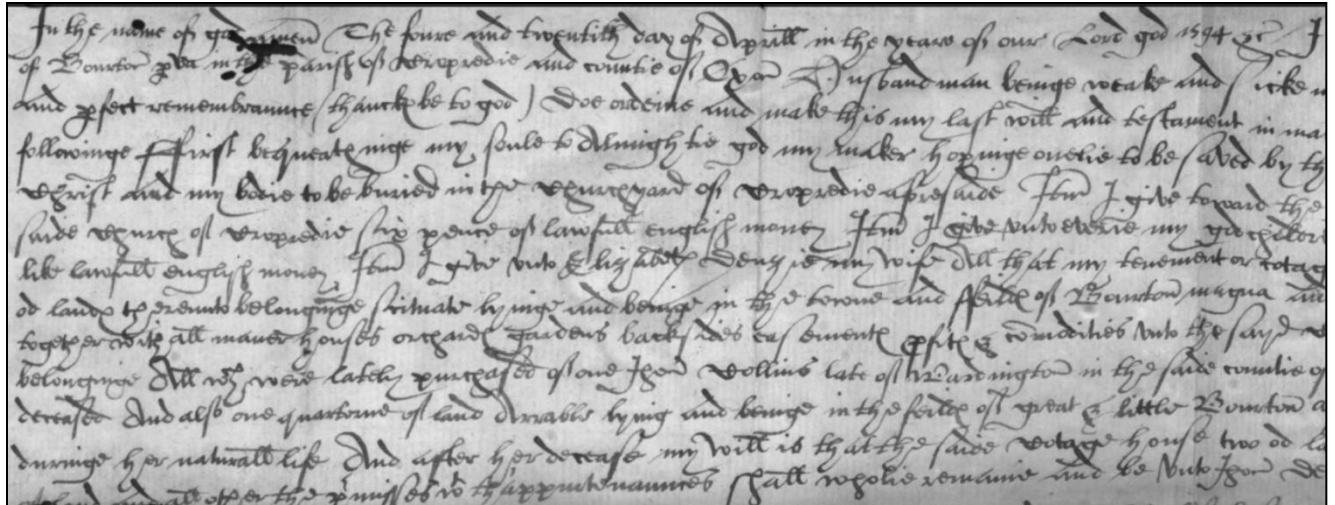 In the name of god Amen The foure and twentith day of Aprill in the yeare of our Lord god 1594 &c I
of Bourton pva in the parish of Cropredie and countie of Oxon Husbandman beinge weake and sicke
and pfect remembraunce (thanckes be to god) Doe ordeine and make this my last will and testament in ma
followinge Ffirst bequeathinge my soule to Almightie god my maker hopinge onelie to be saved by th
Christ and my bodie to be buried in the Churchyard of Cropredie aforesaide Itm I give toward the
saide Church of Cropredie six pence of lawfull english money Itm I give unto everie my godchildre
like lawfull english money Itm I give unto Elizabeth my wife All that my tenement or cotag
od landes thereunto belonginge scituate lyinge and beinge in the towne and ffeildes of Bourton magna and
together with all maner houses orchardes gardens backsides easementes pfites & comodities unto the sayd
belonginge All wch were lately purchased of one Jhon Collins late of Wardington in the saide countie of
deceased And also one quarterne of land arrable lying and beinge in the feildes of great & little Bourton
duringe her naturall life And after her decease my will is that the saide Cotage house two od la
and all other the pmisses wth thappurtenaunces shall wholie remaine and be unto Jhon De